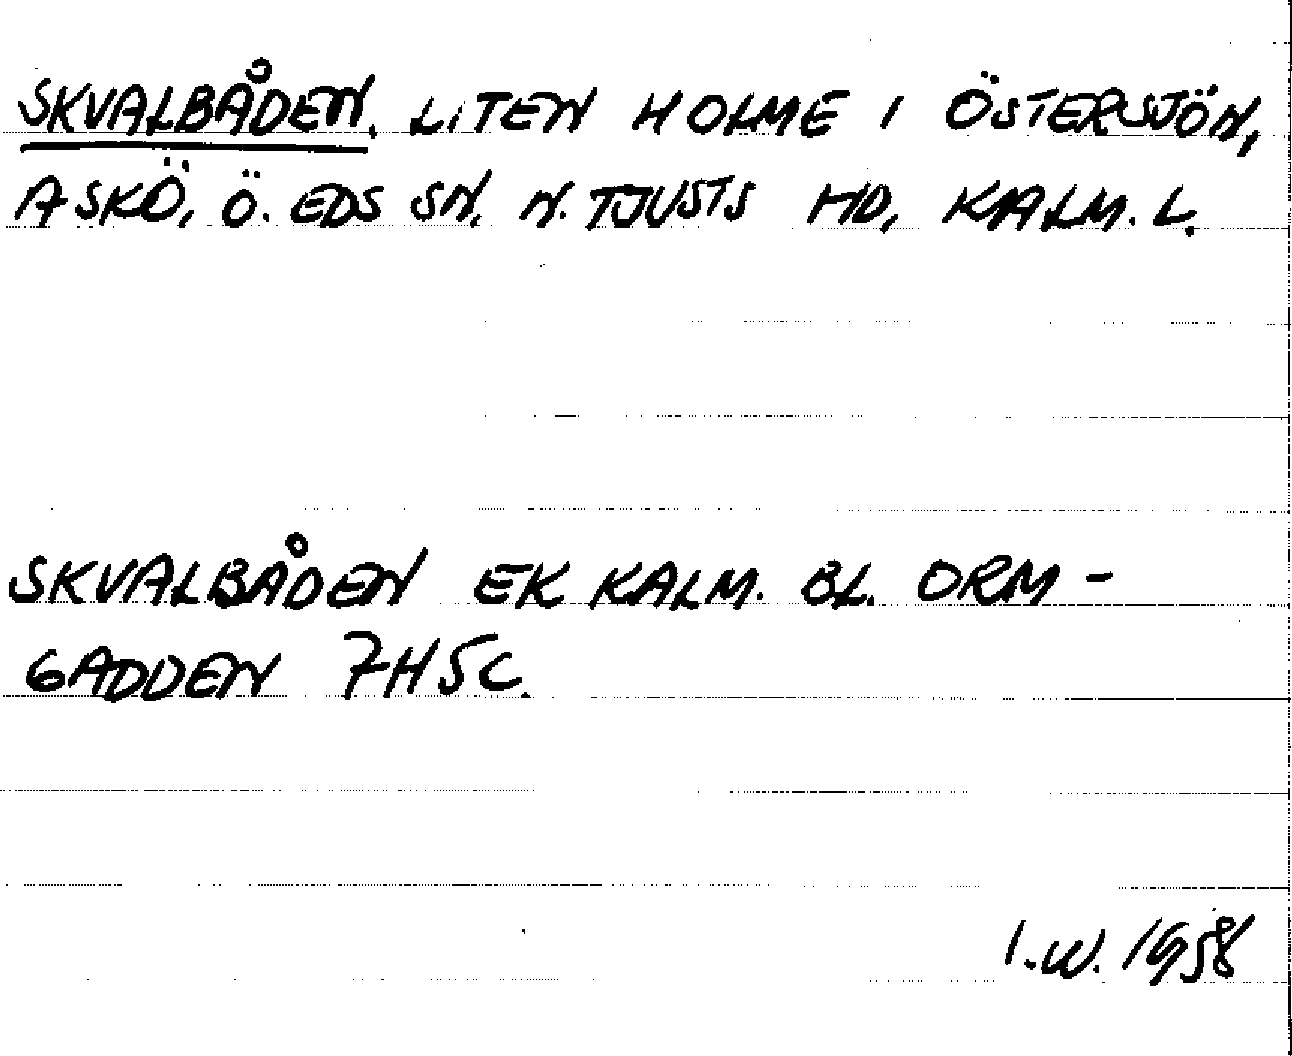 SKVALBÅDEN. LITEN HOLME I ÖSTERSJÖN,
ASKÖ, Ö. EDS SN. N. TJUSTS HD, KALM. L.
SKVALBÅDEN EK KALM. BL. ORM-
GADDEN 7H5C.
I.W. 1958